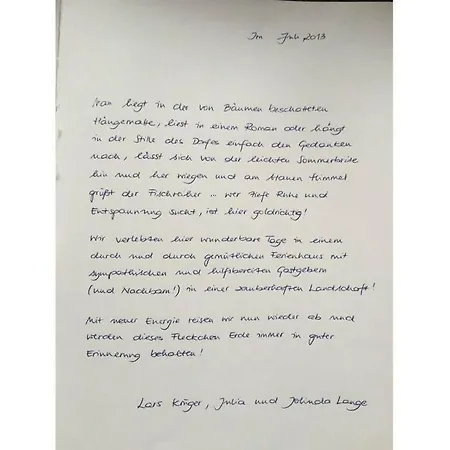 Im Juli 2013
Man liegt in der von Bäumen beschatteten
Hängematte, liest in einem Roman oder hängt
in der Stille des Dorfes einfach den Gedanken
nach, lässt sich von der leichten Sommerbrise
hin und her wiegen und am blauen Himmel
grüßt der Fischreiher ... wer tiefe Ruhe und
Entspannung sucht, ist hier goldrichtig!
Wir verlebten hier wunderbare Tage in einem
durch und durch gemütlichen Ferienhaus mit
sympathischen und hilfsbereiten Gastgebern
(und Nachbarn!) in einer zauberhaften Landschaft!
Mit neuer Energie reisen wir nun wieder ab und
werden dieses Fleckchen Erde immer in guter
Erinnerung behalten!
Lars Krüger, Julia und Lange